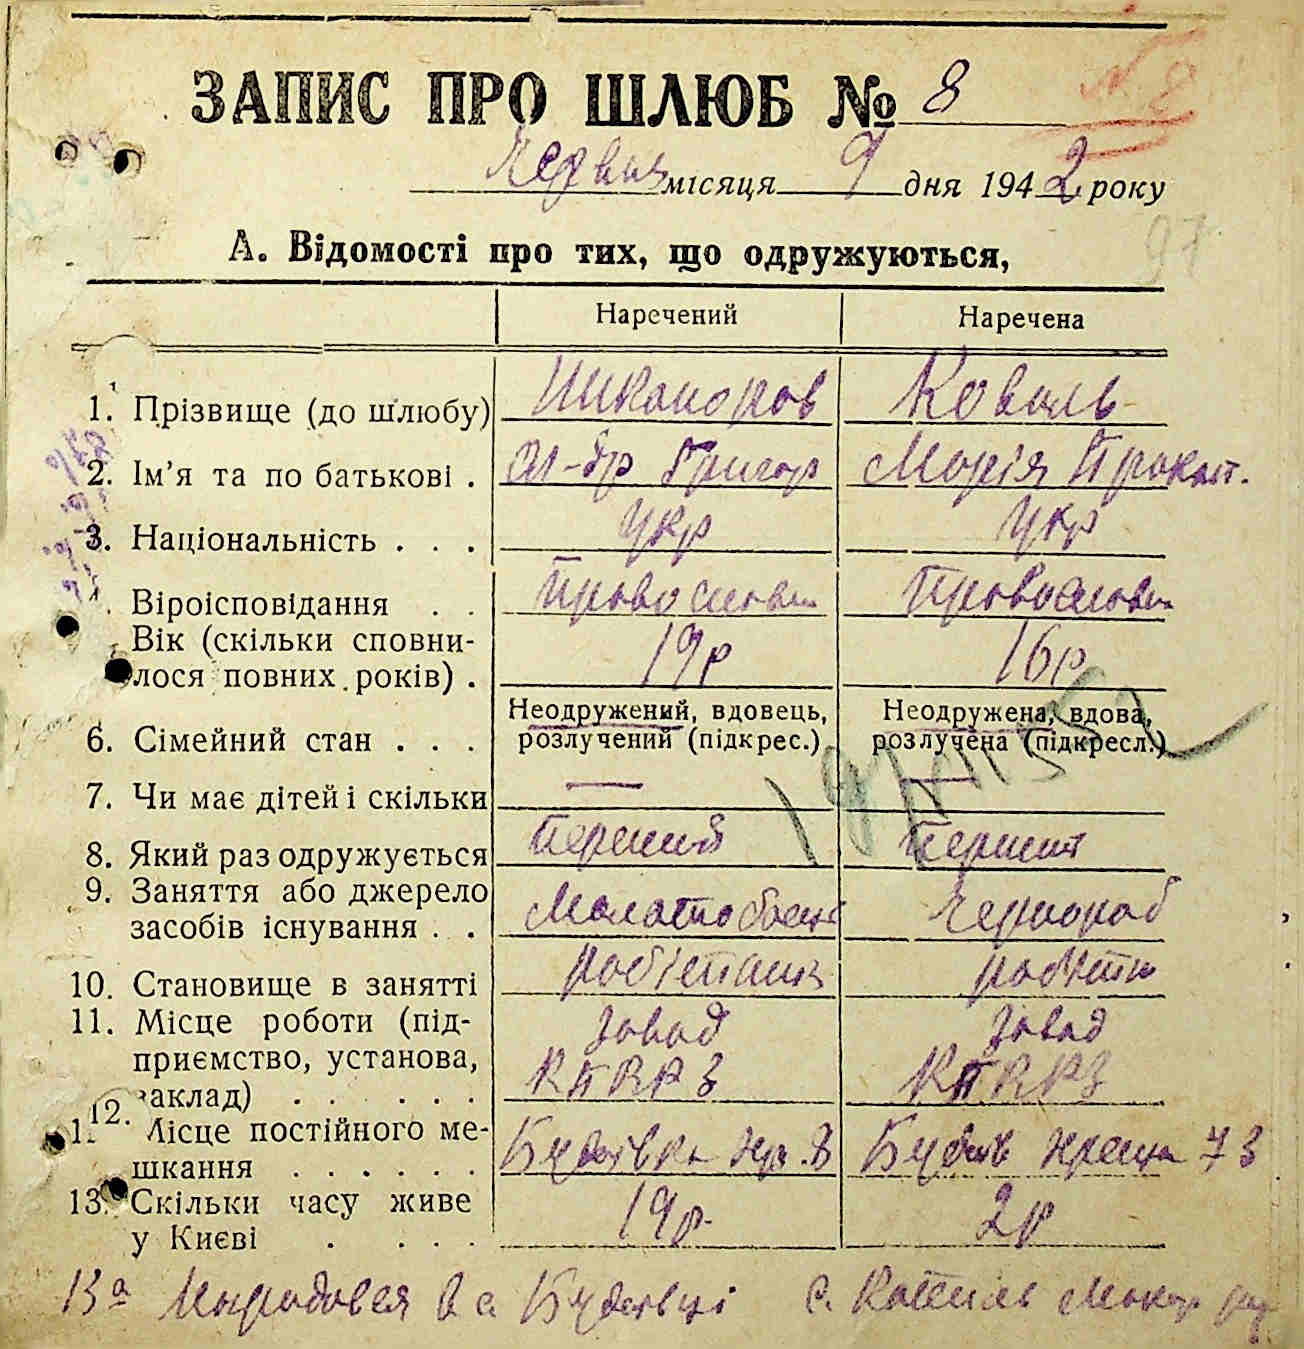 ЗАПИС ПРО ШЛЮБ № 8
№ 8
Червня місяця 9 дня 1942 року
97
А. Відомості про тих, що одружуються,
Наречений Наречена
1. Прізвище (до шлюбу) Никаноров Коваль
2. Ім’я та по батькові . Ол-др Григор Марія Прокоп.
3. Національність . . . Укр Укр
. Віроісповідання . . Православн Православн
Вік (скільки сповни-
лося повних років) . 19р 16р
Неодружений, вдовець, Неодружена, вдова,
6. Сімейний стан . . . розлучений (підкрес.) розлучена (підкресл.)
7. Чи має дітей і скільки — —
8. Який раз одружується Перший Перший
9. Заняття або джерело
засобів існування . . Молотобоєць Чернороб
10. Становище в занятті робітник робітн
11. Місце роботи (під- Завод Завод
приємство, установа, КПВРЗ КПВРЗ
заклад) . . . . . .
12. Місце постійного ме-
шкання . . . . . . Будаївка 8 Будаїв 73
13. Скільки часу живе
у Києві . . . . 19р. 2р
13а Народився в с Будаївці с. Макар